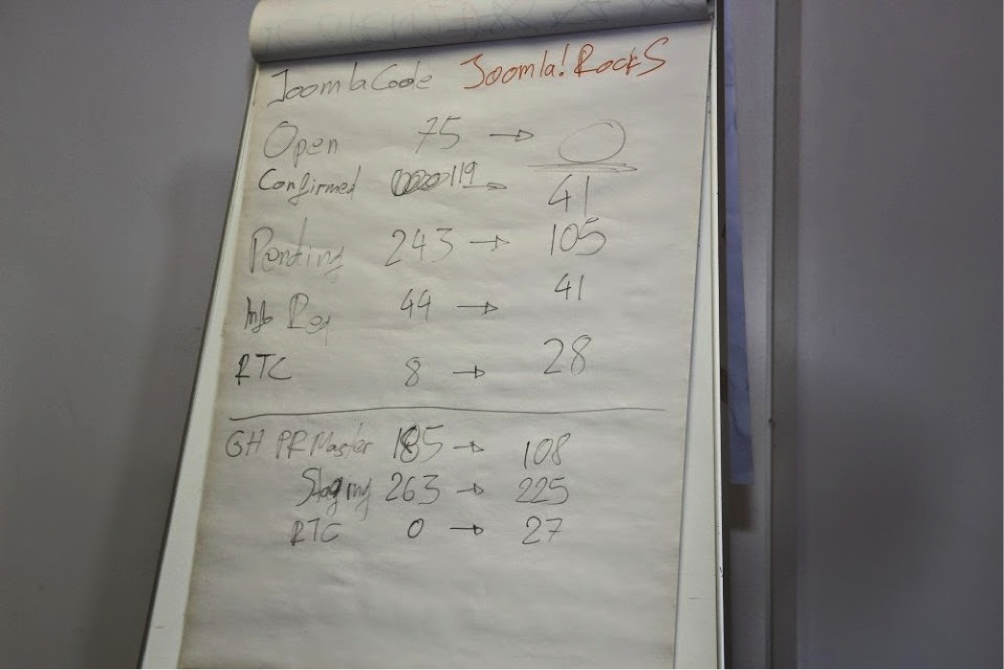 JoomlaCode Joomla! Rocks
Open 75 → 0
Confirmed 119 → 41
Pending 243 → 105
Info Req 44 → 41
RTC 8 → 28
GH PR Master 185 → 108
Staging 263 → 225
RTC 0 → 27